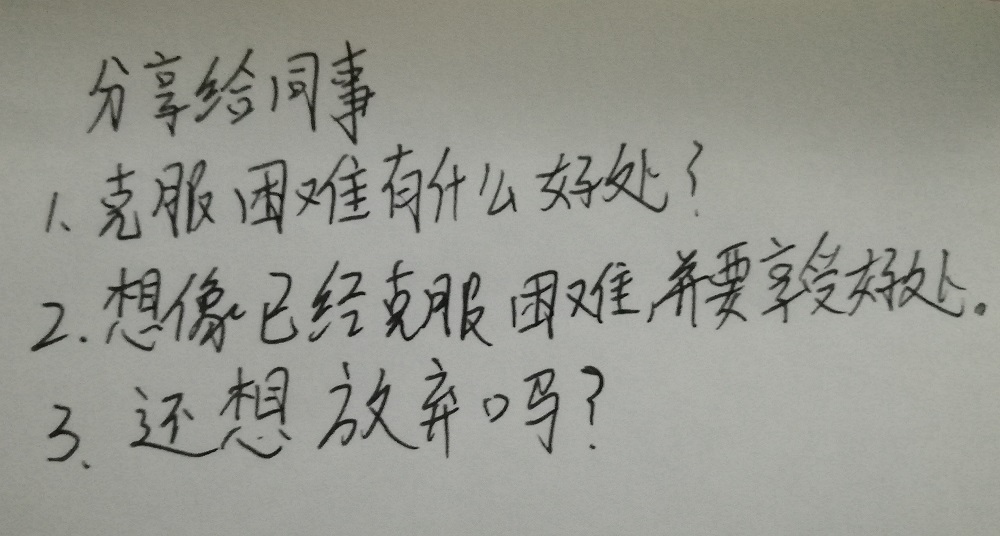 分享给同事
1、克服困难有什么好处？
2.想像已经克服困难,并要享受好处。
3、还想放弃吗？